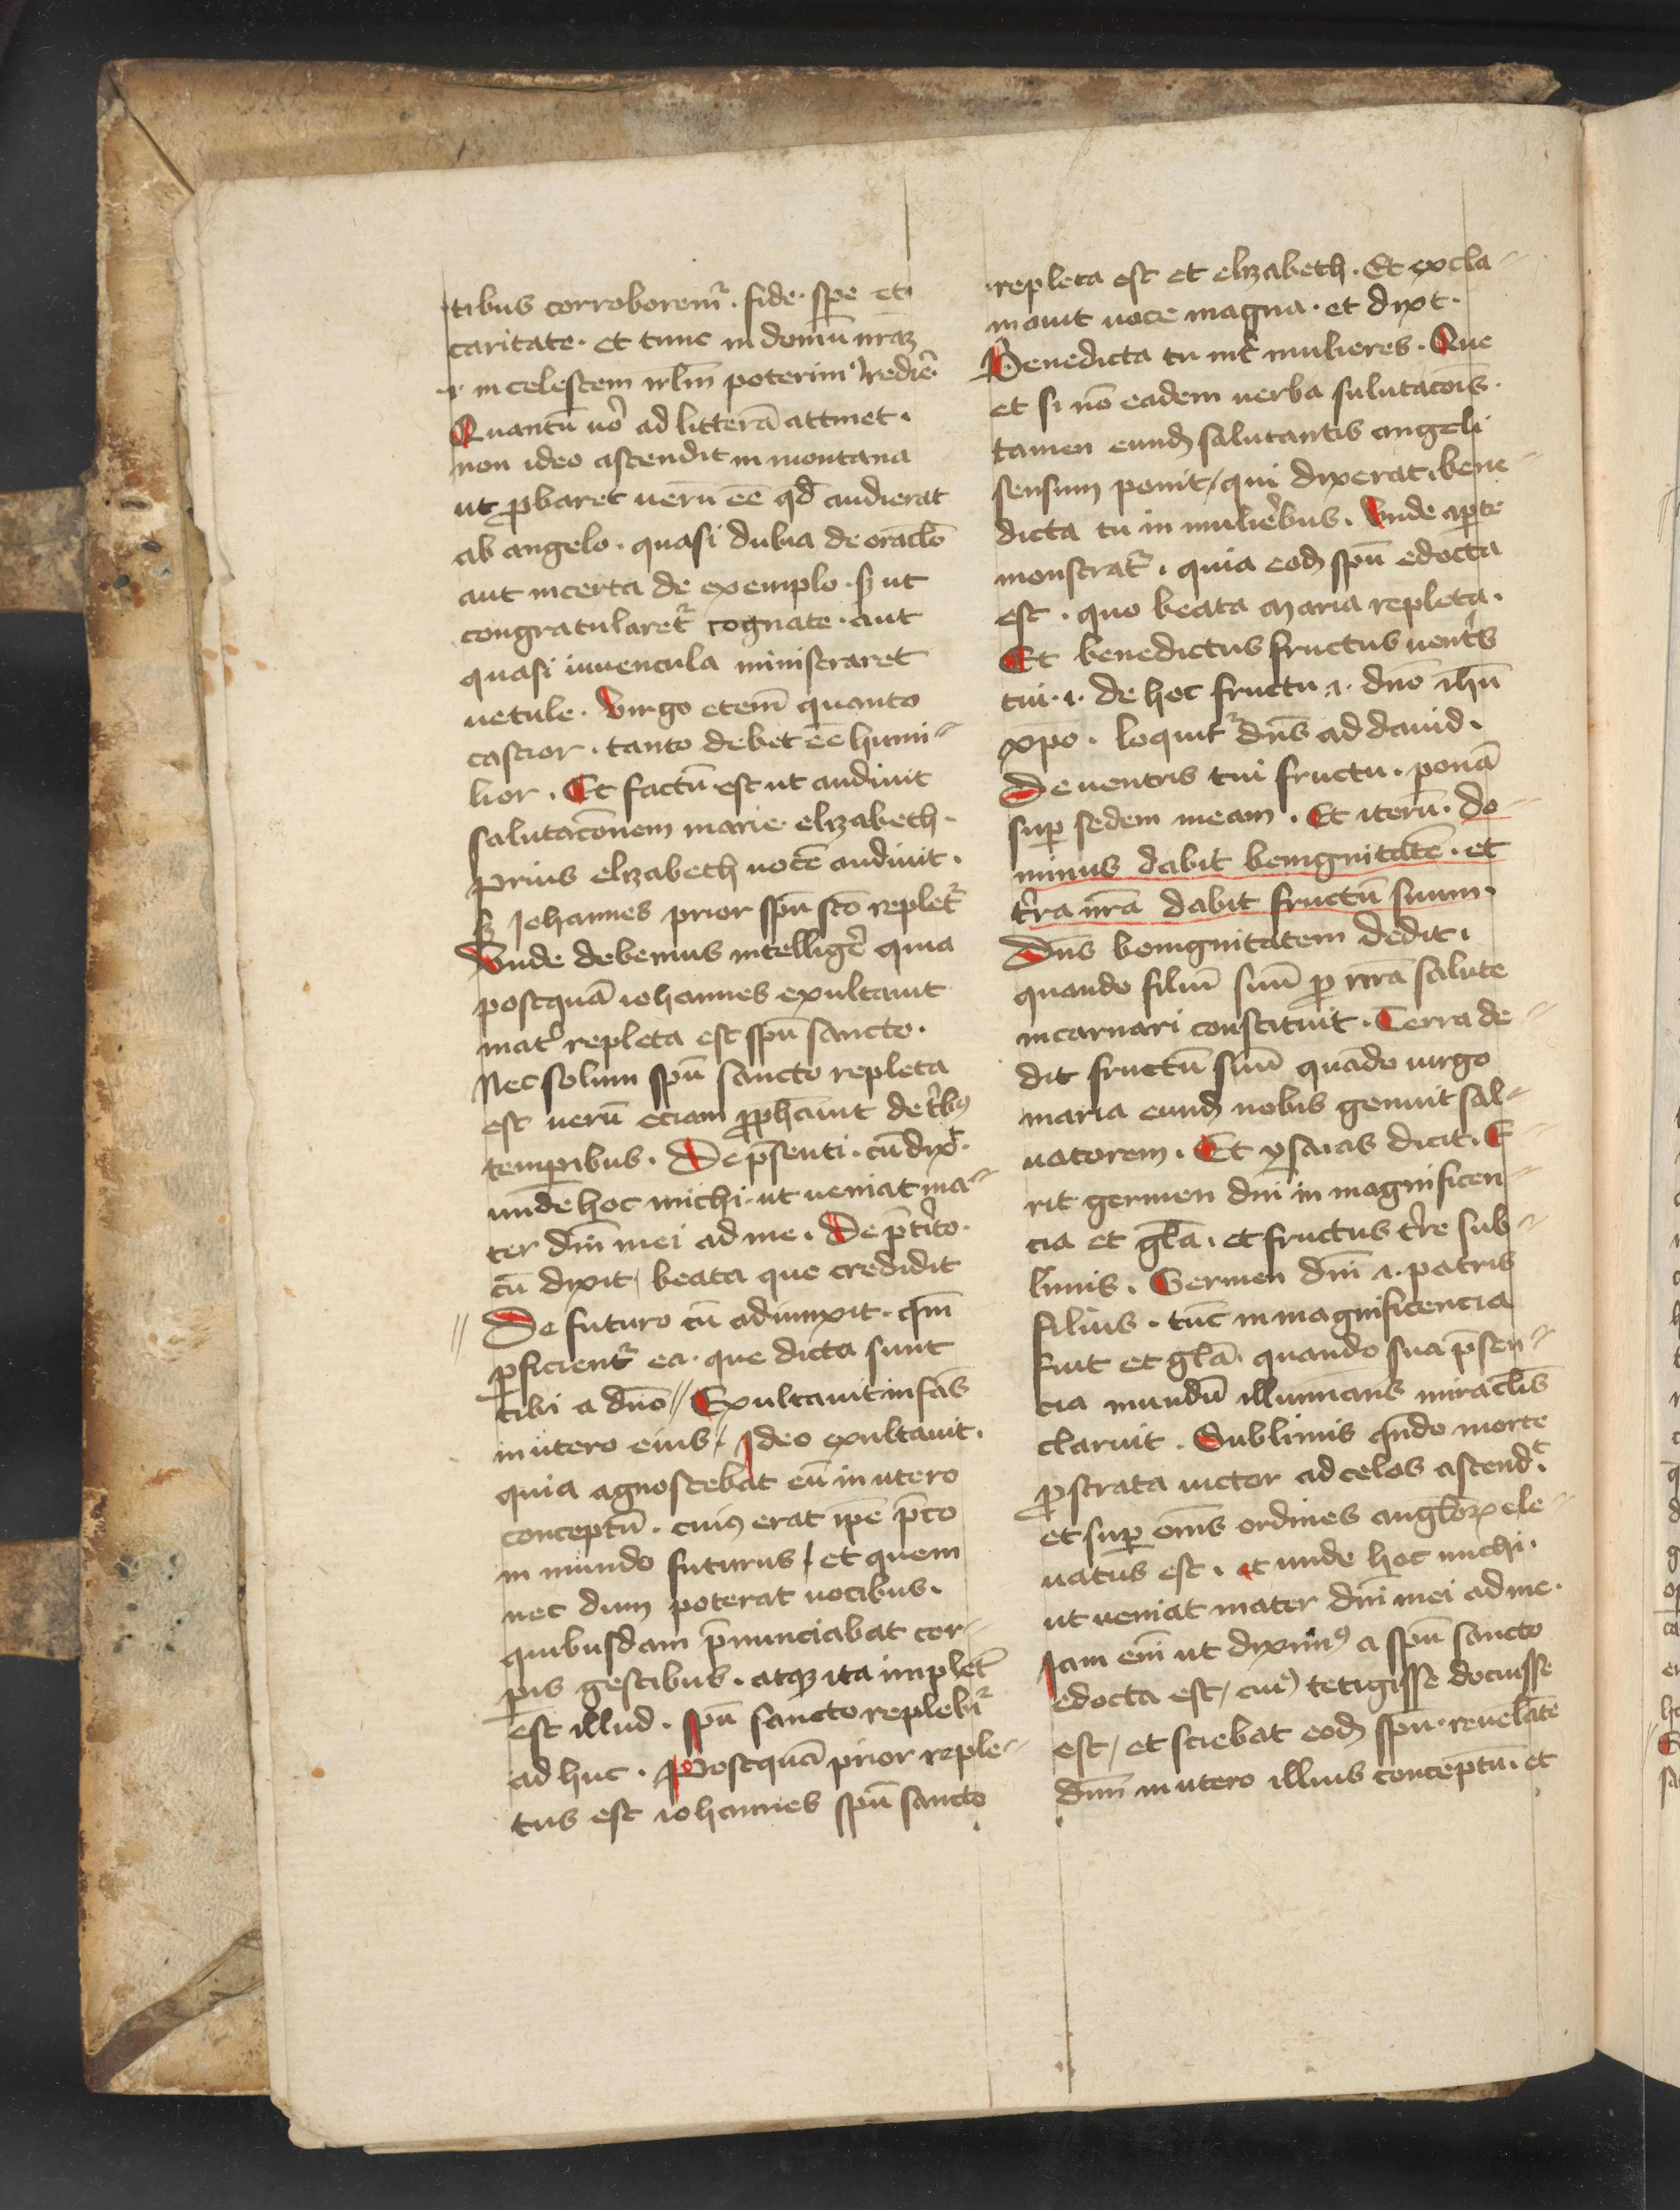 tibus corroborem᷑. fide. spe et
caritate. et tunc in domū nrāꝫ
.i. in celestem ir̄lm̄ poterimꝰ redir̄e.
Quantū uo᷑ ad litterā attinet.
non ideo ascendit in montana
ut ꝓbaret uerū eē qd̄ audierat
ab angelo. quasi dubia de orac̄lo
aut incerta de exemplo. sꝫ ut
congratularet᷑ cognate. aut
quasi iuuencula ministraret
uetule. Virgo etem̄ quanto
castior. tanto debet eē humi⸗
lior. Et factū est ut audiuit
salutac̄onem marie elizabeth.
Prius elizabeth uocē audiuit.
sꝫ Johannes prior sp̄u sc̄o replet᷑
Vnde debemus intellige᷑ quia
postquā iohannes exultauit
mat᷑ repleta est sp̄u sancto.
Nec solum sp̄u sancto repleta
est uerū eciam ꝓph̄auit de t᷑bꝰ
temꝑibus. De p̄senti. cū dix͛t.
unde hoc michi. ut ueniat ma⸗
ter dn̄i mei ad me. De p̄t᷑ito.
cū dixit / beata que credidit
// De futuro cū adiunxit. qm̄
ꝑficient᷑ ea. que dicta sunt
tibi a dn̄o // Exultauit infās
in utero eius / Ideo exultauit.
quia agnoscebat eū in utero
conceptū. cuiꝰ erat ip̄e p̄co
in mundo futurus / et quem
nec dum poterat uocibus.
quibusdam p̄nunciabat cor⸗
ꝑis gestibus. atqꝫ ita implet᷑
est illud. sp̄u sancto replebi᷑
ad huc. Postquā prior reple⸗
tus est iohannes sp̄u sancto
repleta est et elizabeth. Et excla⸗
mauit uoce magna. et dix͛t.
Benedicta tu int᷑ mulieres. Que
et si nō eadem uerba salutac̄ois.
tamen eundꝫ salutantis angeli
sensum ponit / qui dixerat. bene⸗
dicta tu in mulie᷑bus. Vnde aꝑte
monstrat᷑. quia eodꝫ sp̄u edocta
est. quo beata maria repleta.
Et benedictus fructus uent᷑s
tui. .i. de hoc fructu .i. dn̄o ih̄u
xp̄o. loquit᷑ dn̄s ad dauid.
De uentris tui fructu. ponā
suꝑ sedem meam. Et iterū. do⸗
minus dabit benignitatē. et
t᷑ra nr̄a dabit fructū suum.
Dn̄s benignitatem dedit.
quando filiū suū ꝓ nr̄a salute
incarnari constituit. Terra de⸗
dit fructū suū quādo uirgo
maria eundꝫ nobis genuit sal⸗
uatorem. Et ysaias dicit. E⸗
rit germen dn̄i in magnificen⸗
cia et gl̄a. et fructus t᷑re sub⸗
limis. Germen dn̄i .i. patris
filius. tūc in magnificencia
fuit et gl̄a. quando sua p̄sen⸗
cia mundū illuminans mirac̄lis
claruit. Sublimis qn̄do morte
ꝓstrata uictor ad celos ascend͛t.
et suꝑ om̄s ordines angl̄oꝝ ele⸗
uatus est. et unde hoc michi.
ut ueniat mater dn̄i mei ad me.
Jam em̄ ut diximꝰ a sp̄u sancto
edocta est / cuiꝰ tetigisse docuisse
est / et sciebat eodꝫ sp̄u. reuelāte
dn̄m in utero illius conceptū. et